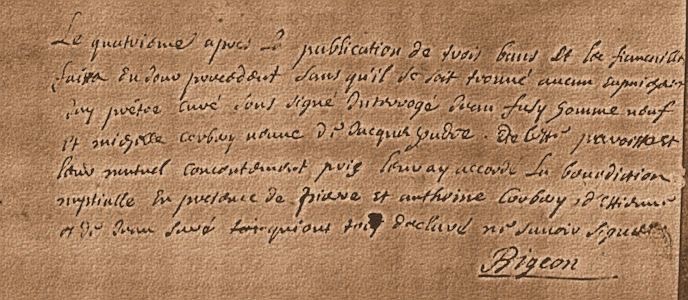 Le quatrieme apres la publication de trois bans et les fiancailles
faitte du jour precedent sans qu'il se soit trouvé aucun
Jay prêtre curé sous signé Interrogé Jean homme neuf
et michelle Corbay veuve de Jacques de cette paroisse et
leur mutuel consentement puis leur ay accordé la benediction
nuptialle En presence de pierre et anthoine Corbay d'Etienne
et de Jean qui ont tous declaré ne savoir signer
Bigeon